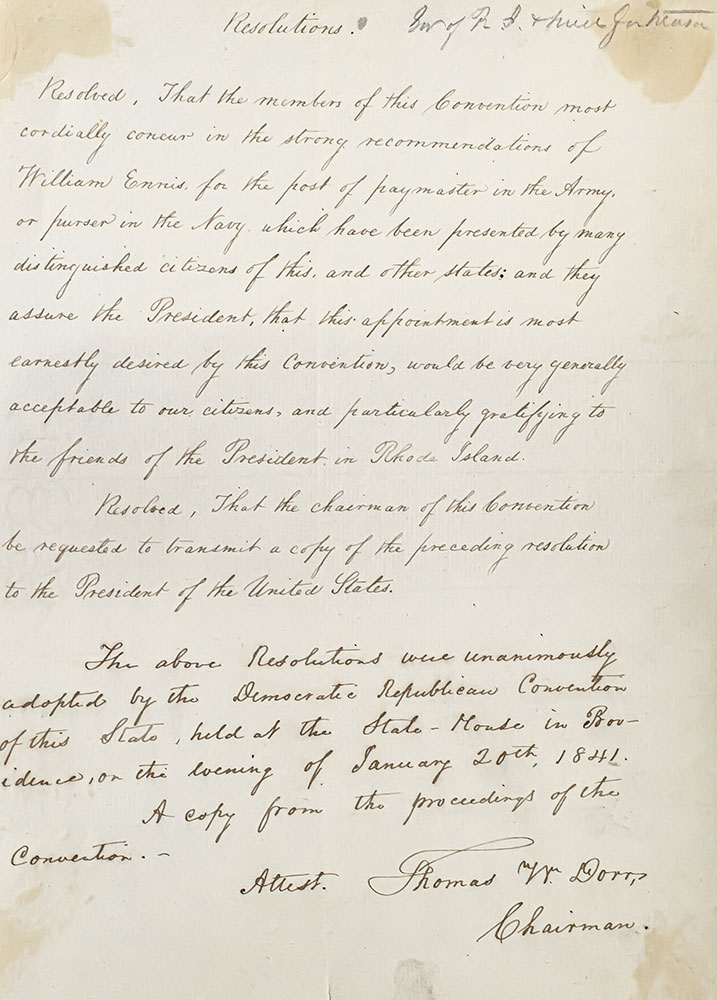 Resolutions. Gov of R I. & tried for treason
Resolved, That the members of this Convention most
cordially concur in the strong recommendations of
William Ennis, for the post of paymaster in the Army,
or purser in the Navy which have been presented by many
distinguished citizens of this, and other states; and they
assure the President, that this appointment is most
earnestly desired by this Convention, would be very generally
acceptable to our citizens, and particularly gratifying to
the friends of the President in Rhode Island.
Resolved, That the chairman of this Convention
be requested to transmit a copy of the preceding resolution
to the President of the United States.
The above Resolutions were unanimously
adopted by the Democratic Republican Convention
of this State, held at the State-House in Prov-
idence, on the evening of January 20th, 1841.
A copy from the proceedings of the
Convention. -
Attest. Thomas W. Dorr,
Chairman.